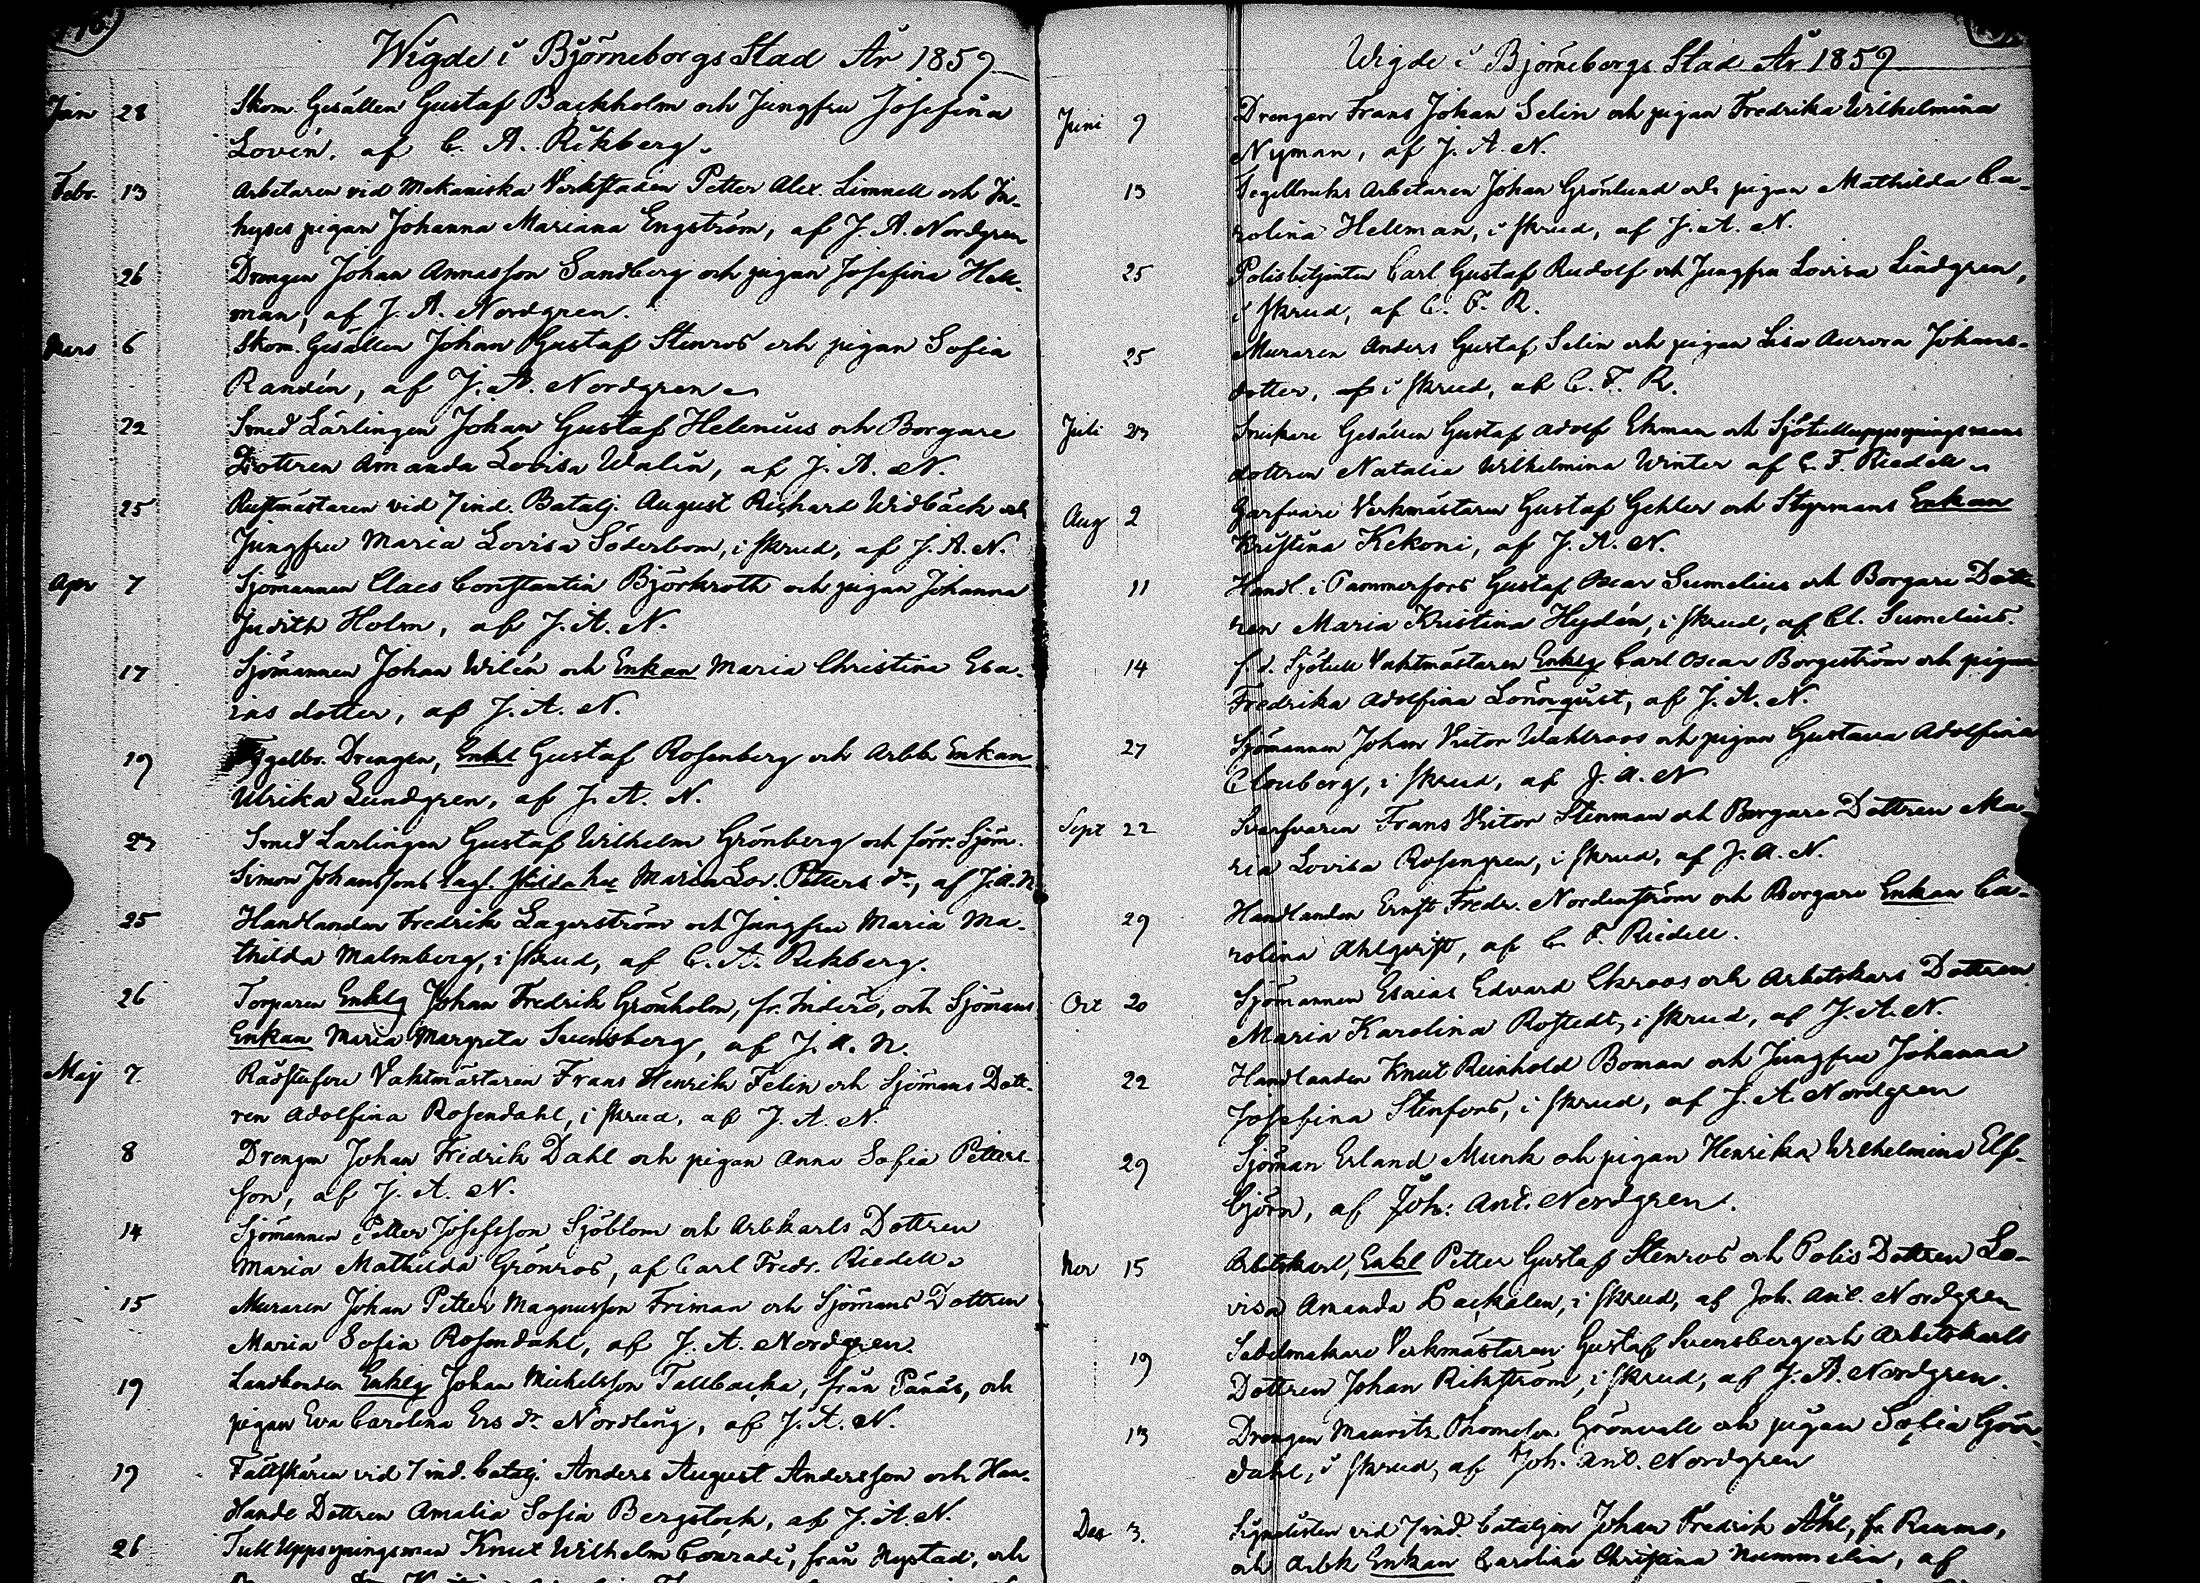 Wigde i Björneborgs Stad År 1859
Jan 28 Skom. Gesällen Gustaf Backholm och Jungfru Josefina
Lovén, af C. A. Rikberg.
Febr. 13 Arbetaren vid Mekaniska Verkstaden Petter Alex. Limnell och In-
hyses pigan Johanna Mariana Engström, af J. A. Nordgren
26 Drengen Johan Annasson Sandberg och pigan Josefina Hell-
man, af J. A. Nordgren.
Mars 6 Skom. Gesällen Johan Gustaf Stenros och pigan Sofia
Randén, af J. A. Nordgren
22 Smed Lärlingen Johan Gustaf Helenius och Borgare
Dottren Amanda Lovisa Walin, af J. A. N.
25 Rustmästaren vid 7 ind. Batalj. August Richard Widbäck och
Jungfru Maria Lovisa Söderbom, i skrud, af J. A. N.
Apr 7 Sjömannen Claes Constantin Björkroth och pigan Johanna
Judith Holm, af J. A. N.
17 Sjömannen Johan Wilén och Enkan Maria Christina Esa-
ias dotter, af J. A. N.
19 Tegelbr. Drengen, Enkl Gustaf Rosenberg och Arbk. Enkan
Ulrika Lundgren, af J. A. N.
23 Smed Lärlingen Gustaf Wilhelm Grönberg och förr. Sjöm.
Simon Johanssons lagl. skilda hu Maria Lov. Petters dr, af J. A. N.
25 Handlanden Fredrik Lagerström och Jungfru Maria Ma-
thilda Malmberg, i skrud, af C. A. Rikberg.
26 Torparen Enklg Johan Fredrik Grönholm, fr. Inderö, och Sjömans
Enkan Maria Margreta Svensberg, af J. A. N.
Maij 7. Rådstufvu Vaktmästaren Frans Henrik Felin och Sjömans Dott-
ren Adolfina Rosendahl, i skrud, af J. A. N.
8 Drengen Johan Fridrik Dahl och pigan Anna Sofia Petters-
son, af J. A. N.
14 Sjömannen Petter Josefsson Sjöblom och Arbkarls Dottren
Maria Mathilda Grönros, af Carl Fredr. Riedell.
15 Muraren Johan Petter Magnusson Friman och Sjömans Dottren
Maria Sofia Rosendahl, af J. A. Nordgren.
19 Landbonden Enklg Johan Michelsson Tallbacka, från Pånäs, och
pigan Eva Carolina Ers dr Nordling, af J. A. N.
19 Fältskären vid 7 ind. batalj. Anders August Andersson och Han-
dlande Dottren Amalia Sofia Bergstock, af J. A. N.
26 Tull Uppsyningsman Knut Wilhelm Conradi, från Nystad, och
Wigde i Björneborgs Stad År 1859
Juni 9 Drengen Frans Johan Selin och pigan Fredrika Wilhelmina
Nyman, af J. A. N.
13 Tegelbruks Arbetaren Johan Grönlund och pigan Mathilda Ca-
rolina Hellman, i skrud, af J. A. N.
25 Polisbetjenten Carl Gustaf Rudolf och Jungfru Lovisa Lindgren,
i skrud, af C. F. R.
25 Muraren Anders Gustaf Selin och pigan Lisa Aurora Johans-
dotter, af i skrud, af C. F. R.
Juli 23 Snickare Gesällen Gustaf Adolf Ekman och Sjötulluppsyningsmans
dottren Natalia Wilhelmina Winter af C. F. Riedell
Aug 2 Garfvare Verkmästaren Gustaf Gehler och Styrmans Enkan
Kristina Kekoni, af J. A. N.
11 Handl. i Tammerfors Gustaf Oscar Sumelius och Borgare Dott-
ren Maria Kristina Hydén, i skrud, af Cl. Sumelius.
14 f. d. Sjötull Vaktmästaren Enklg Carl Oscar Borgström och pigan
Fredrika Adolfina Lönnqvist, af J. A. N.
27 Sjömannen Johan Victor Wahlroos och pigan Gustava Adolfina
Clouberg, i skrud, af J. A. N
Sept 22 Svarfvaren Frans Victor Stenman och Borgare Dottren Ma-
ria Lovisa Rosengren, i skrud, af J. A. N.
29 Handlanden Ernst Fredr. Nordenström och Borgare Enkan Ca-
rolina Ahlqvist, af C. F. Riedell.
Oct 20 Sjömannen Esaias Edvard Ekroos och Arbetskars Dottren
Maria Karolina Rostedt, i skrud, af J. A. N.
22 Handlanden Knut Reinhold Boman och Jungfru Johanna
Josefina Stenfors, i skrud, af J. A. Nordgren
29 Sjöman Erland Munk och pigan Henrika Wilhelmina Elf-
björn, af Joh: Ant. Nordgren.
Nov 15 Arbetskarl, Enkl Petter Gustaf Stenros och Polis Dottren Lo-
visa Amanda Backalen, i skrud, af Joh. Ant. Nordgren
19 Sadelmakare Verkmästaren Gustaf Svensberg och Arbetskarls
Dottren Johan Rikström, i skrud, af J. A. Nordgren.
13 Drengen Mauritz Thomsson Grönvall och pigan Sofia Grön-
dahl, i skrud, af Joh. Ant. Nordgren
Dec 3. Signalisten vid 7 ind. bataljon Johan Fredrik Åhl, fr. Raumo,
och Arbk Enkan Carolina Christina Nummelin, af